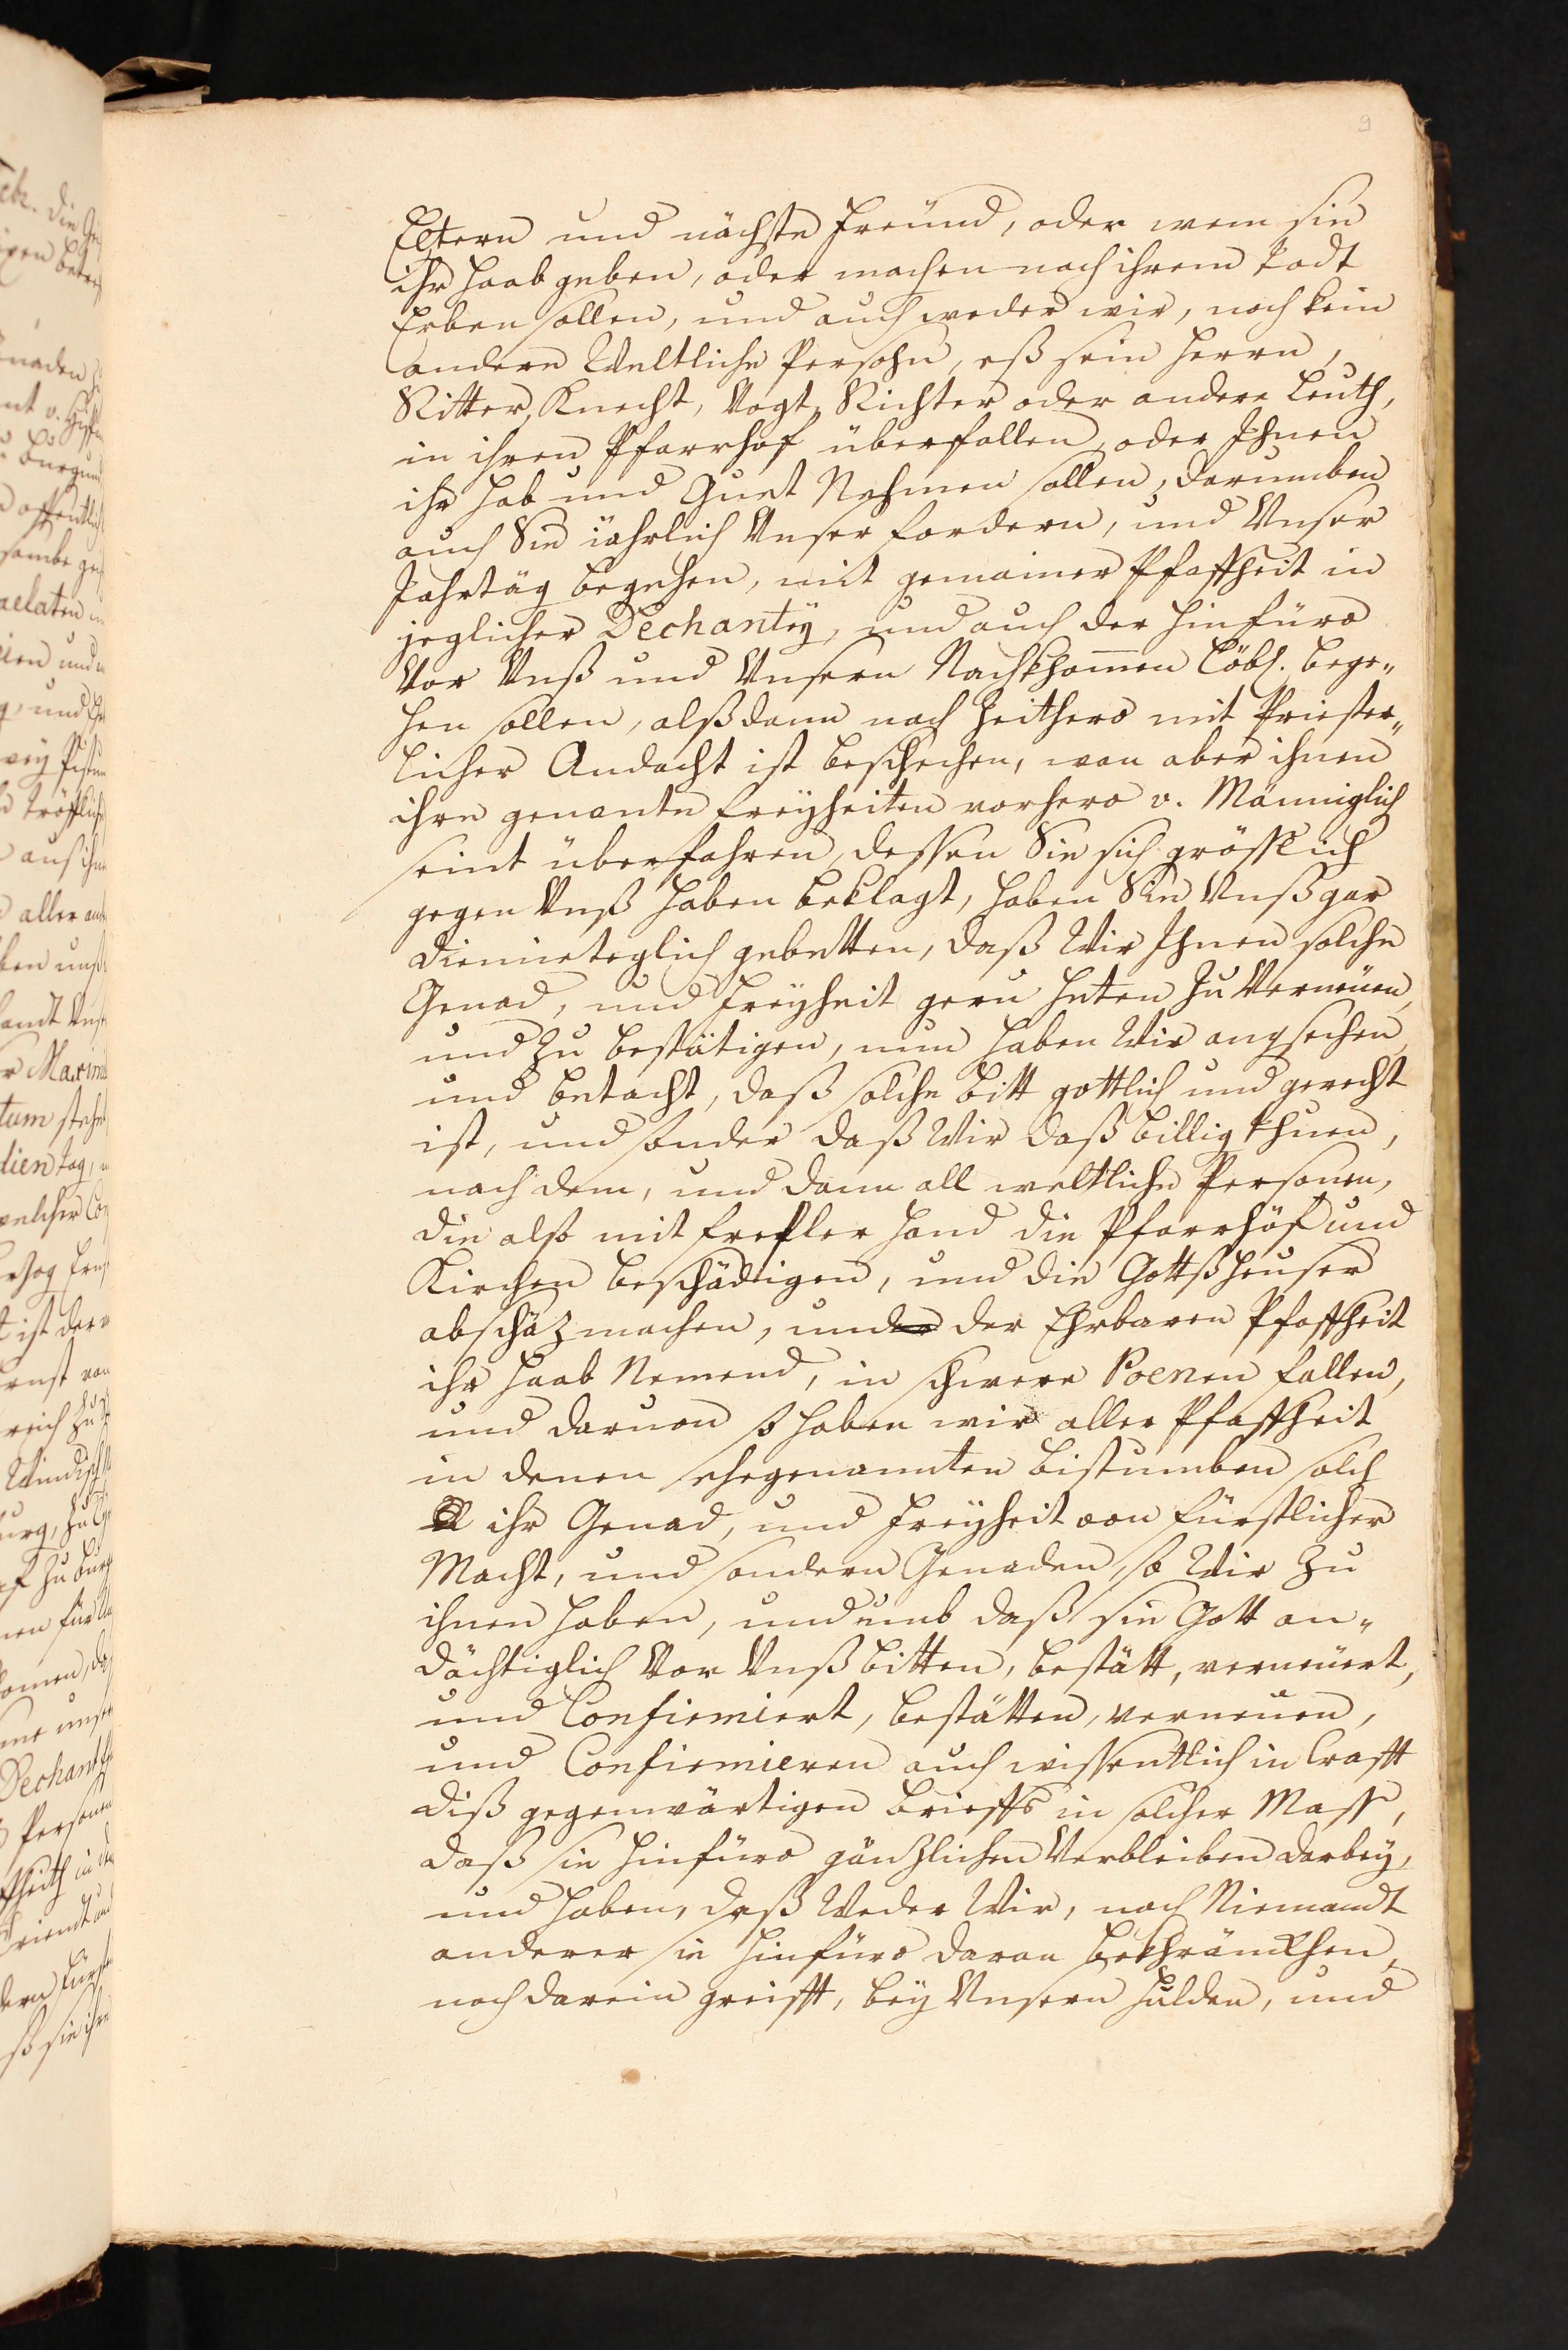 9
Eltern und nächste Freünd, oder wem sie
ihr Haab geben, oder machen nach ihrem Todt
Erben sollen, und auch weder wir, noch kein
andere Weltliche Persohn, eß sein Herrn,
Ritter, Knecht, Vogt, Richter oder andere Leuth,
in ihren Pfarrhof überfallen, oder Ihnen
ihr Hab und Guet Nehmen sollen, darumben
auch Sie jährlich Unser fordern, und Unser
Jahrtäg begehen, mit gemainer Pfaffheit in
jeglicher Dechantey, und auch der hinfüro
Vor Unß und Unsern Nachkhommen Löbl. bege„
hen sollen, alß dann nach Zeithero mit Priester„
licher Andacht ist beschechen, wan aber ihnen
ihre genante Freyheiten vorhero v. Männiglich
seint überfahren, dessen Sie sich grösslich
gegen Unß haben beklagt, haben Sie Unß gar
diemieteglich gebetten, daß Wir Ihnen solche
Genad, und Freyheit geru heten Zu Verneüen,
und Zu bestätigen, nun haben Wir angesechen,
und betacht, daß solche bitt gottlich und gerecht
ist, und sonder daß Wir daß billig thuen,
nach dem, und dann all weltliche Personen,
die also mit frefler Hand die Pfarrhöf und
Kirchen beschädigen, und die Gottßheuser
abschäz machen, und der Ehrbaren Pfaffheit
ihr Haab Nemend, in schwere Poenen fallen,
und daruon so haben wir aller Pfaffheit
in denen ehegenannten Bistumben solch
ihr Genad, und Freyheit von fürstlicher
Macht, und sondern Genaden, so Wir Zu
ihnen haben, und umb daß sie Gott an„
dächtiglich Vor Unß bitten, bestätt, verneüert,
und Confiemiert, bestätten, verneuen,
und Confiemieren auch wissentlich in Crafft
diß gegenwärtigen Brieffs in solcher Mass,
daß sie hinfüro gänzlichen Verbleiben darbey,
und haben, daß Weder Wir, noch Niemandt
anderer sie hinfüro daran bekhränckhen,
noch darein greifft, bey Unsern Hulden, und